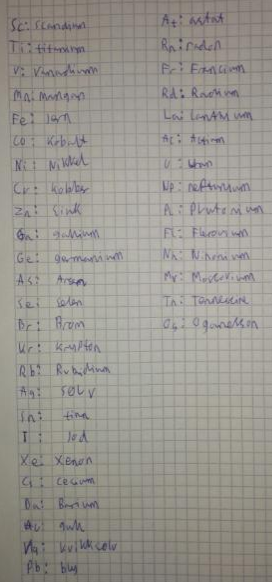 Sc: Scandium
Ti: titanium
V: Vanadium
Mn: mangan
Fe: Jern
Co: Kobolt
Ni: Nikkel
Cr: Kobber
Zn: Sink
Ga: gallium
Ge: germanium
As: Arsen
Se: Selen
Br: Brom
Kr: Krypton
Rb: Rubidium
Ag: Sølv
Sn: tinn
I: Iod
Xe: Xenon
Cs: cesium
Ba: Barium
Au: gull
Hg: kvikksølv
Pb: bly
At: astat
Rn: radon
Fr: Francium
Rd: Radium
La: Lanthanum
Ac: Actium
U: Uran
Np: neptunium
Plutonium
Fl: Flerovium
Nh: Nihonium
Mc: Moscovium
Tn: Tennessine
Og: Oganesson